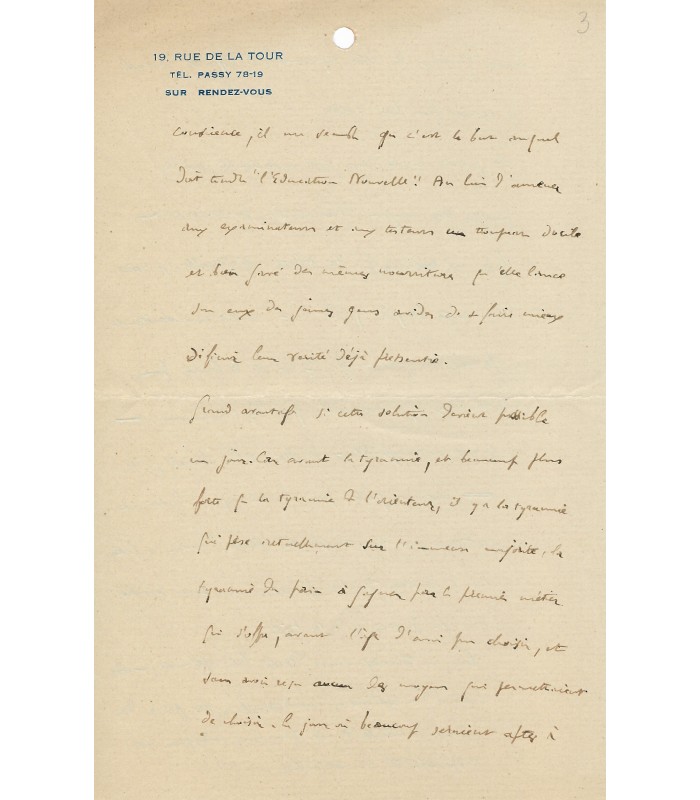 3
19, RUE DE LA TOUR
TÉL. PASSY 78-19
SUR RENDEZ-VOUS
conscience, il me semble que c'est le but auquel
doit tendre "l'Education Nouvelle". Au lieu d'amener
aux examinateurs et aux testeurs un troupeau docile
et bien gavé des mêmes nourritures qu'elle lance
des jeunes gens avides de se faire mieux
définir leur vérité déjà pressentie.
Grand avantage si cette solution devient possible
un jour. Car avant la tyrannie, et beaucoup plus
forte que la tyrannie de l'orienteur, il y a la tyrannie
qui pèse actuellement sur l'immense majorité, la
tyrannie du pain à gagner par le premier métier
qui s'offre, avant l'âge d'avoir pu choisir, et
sans avoir reçu aucun des moyens qui permettraient
de choisir. Le jour où beaucoup seraient aptes à